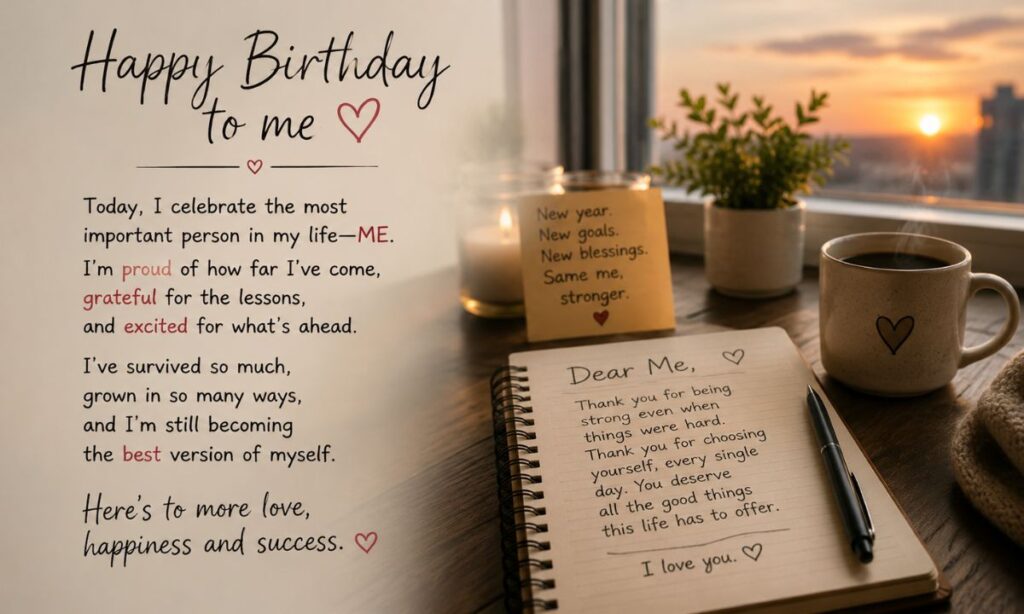 Happy Birthday
to me
Today, I celebrate the most
important person in my life—ME.
I'm proud of how far I've come,
grateful for the lessons,
and excited for what's ahead.
I've survived so much,
grown in so many ways,
and I'm still becoming
the best version of myself.
Here's to more love,
happiness and success.
New year.
New goals.
New blessings.
Same me,
stronger.
Dear Me,
Thank you for being
strong even when
things were hard.
Thank you for choosing
yourself, every single
day. You deserve
all the good things
this life has to offer.
I love you.